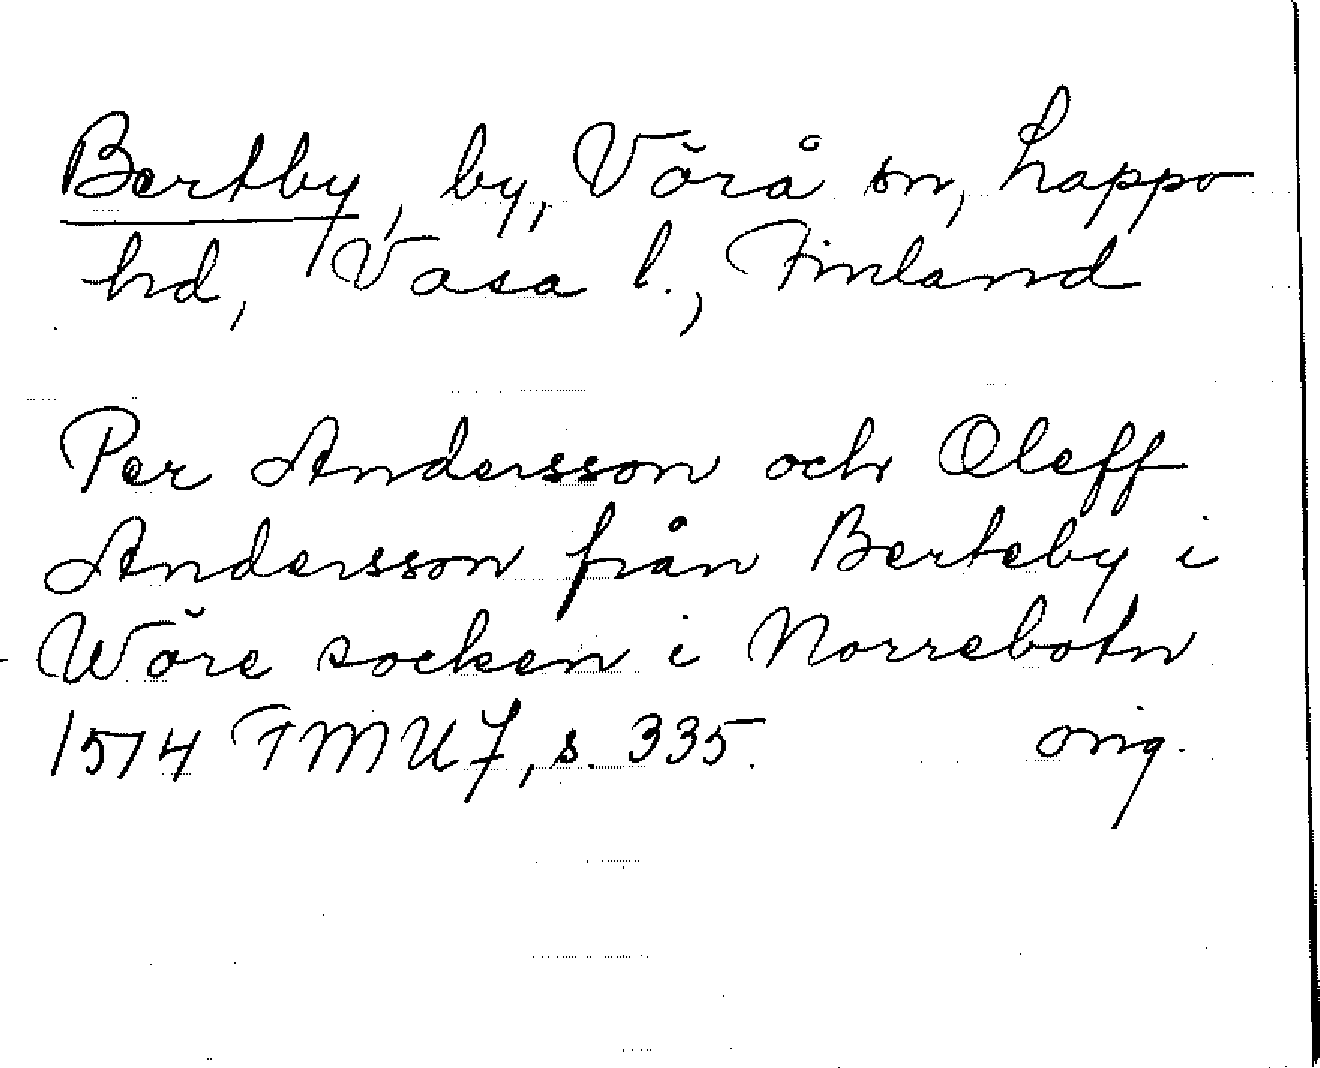 Bertby, by, Vörå sn, Lappo
hd, Vasa l., Finland
Per Andersson och Oleff
Andersson från Berteby i
Wöre socken i Norrebotn
1574 TMU 7, s. 335. orig.